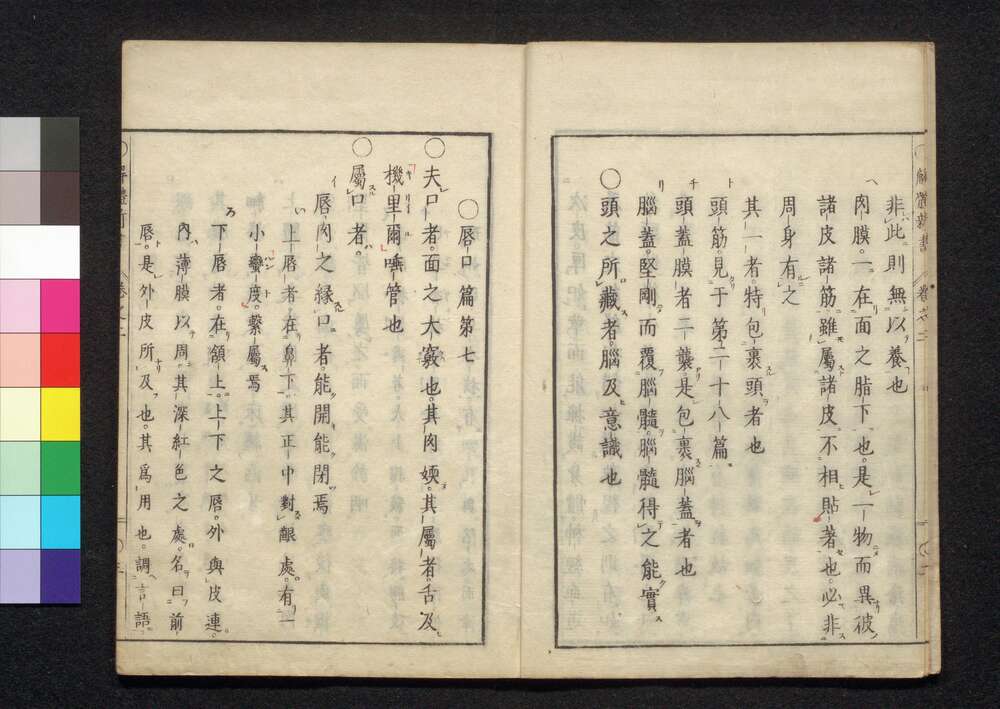 非此則無以養也
肉膜一在面之脂下也是一物而異彼
諸皮諸筋雖屬諸皮不相貼著也必非
周身有之
其一者特包裹頭者也
頭筋見于第二十八篇
頭蓋膜者二襲是包裹腦蓋者也
腦蓋堅剛而覆腦髓腦髓得之能實
〇頭之所藏者腦及意識也
〇唇口篇第七
〇夫口者面之大竅也其肉䎡其屬者舌及
機里爾唾管也
〇屬口者
唇肉之縁口者能開能閉焉
上唇者在鼻下其正中對齦處有一
小蠻度繫屬焉
下唇者在頷上上下之唇外與皮連
內薄膜以周其深紅色之處名曰前
唇是外皮所及也其爲用也調言語